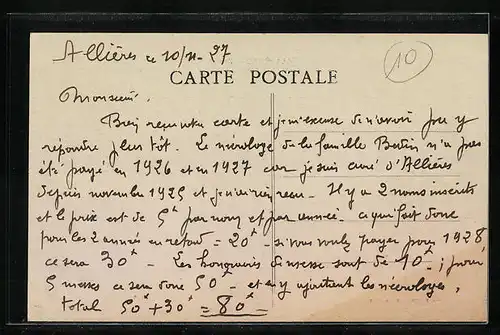 Allières ce 10/XI-27
10
CARTE POSTALE
Monsieur.
Bien reçu votre carte et je m'excuse de n'avoir pu y
répondre plus tôt. Le nécrologe de la famille Bertin n'a pas
été payé en 1926 et en 1927 car je suis curé d'Allières
depuis novembre 1925 et je n'ai rien reçu. Il y a 2 noms inscrits
et le prix est de 5f par nom et par année. ce qui fait donc
pour les 2 années en retard = 20f - si vous voulez payer pour 1928,
ce sera 30f - Les honoraires de messe sont de 10f ; pour
5 messes ce sera donc 50f - et en y ajoutant les nécrologes,
total 50f + 30f = 80f -